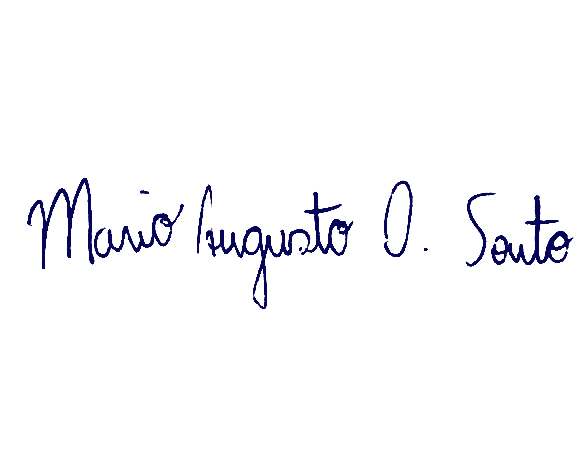 Mario Augusto O. Souto